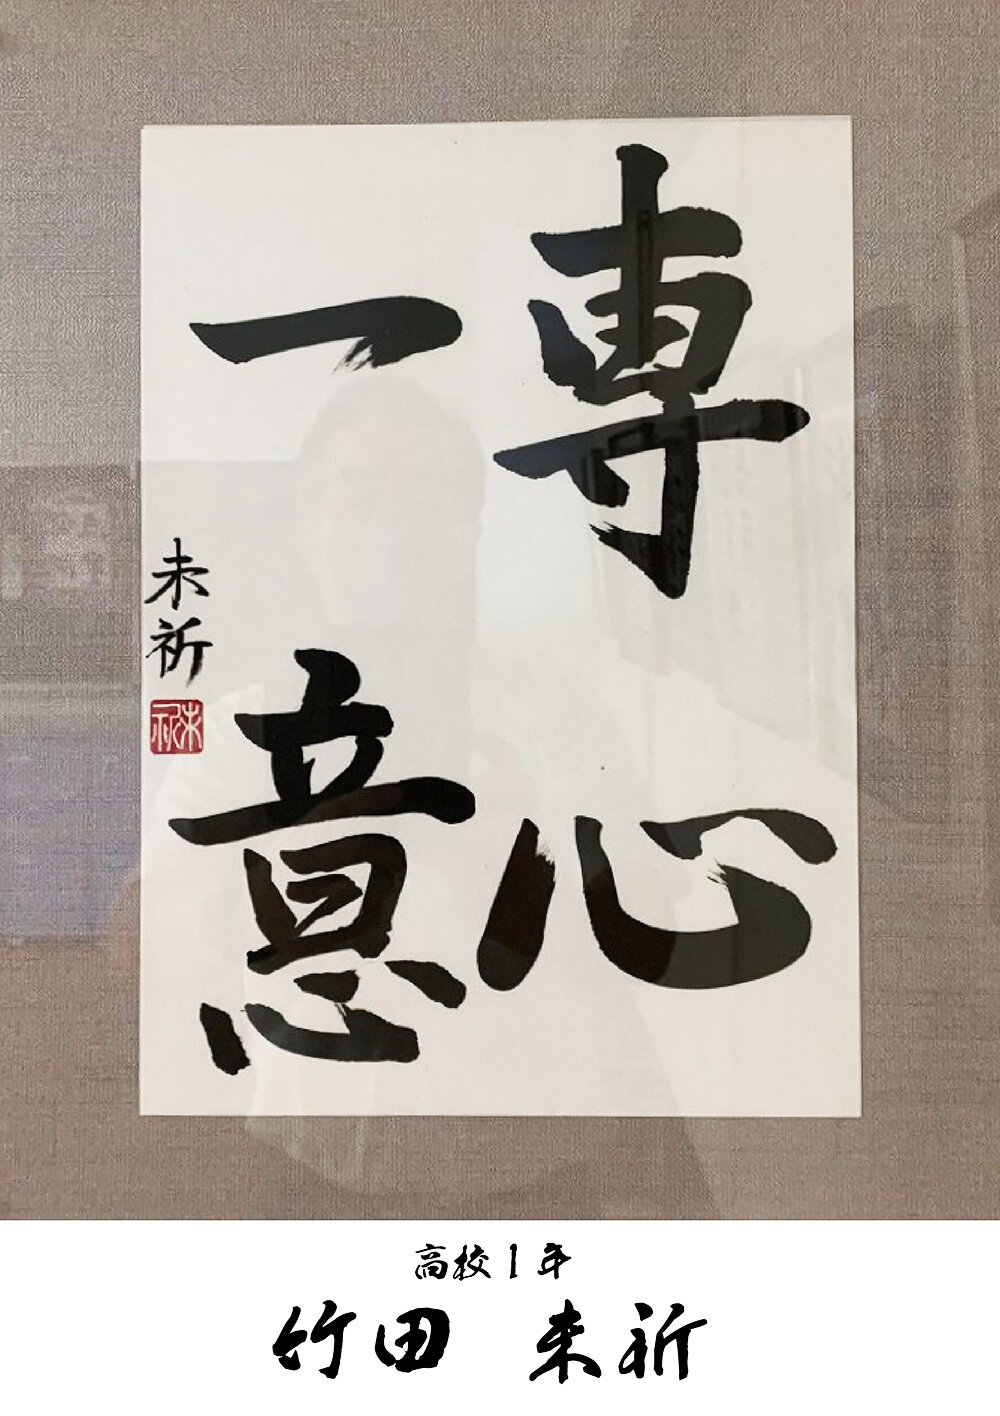 専心
一意
未祈
未祈
高校1年
竹田 未祈